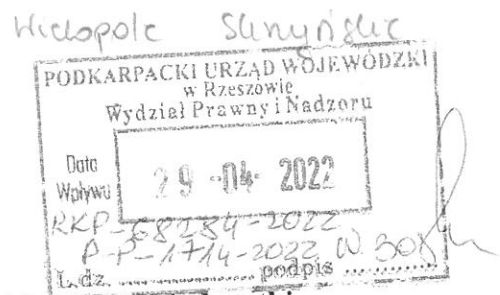 Wielopole Skrzyńskie
PODKARPACKI URZĄD WOJEWÓDZKI
w Rzeszowie
Wydział Prawny i Nadzoru
Data
Wpływu
29 -04- 2022
RKP-68234-2022
P-P-1714-2022
L.dz. ............ podpis ............